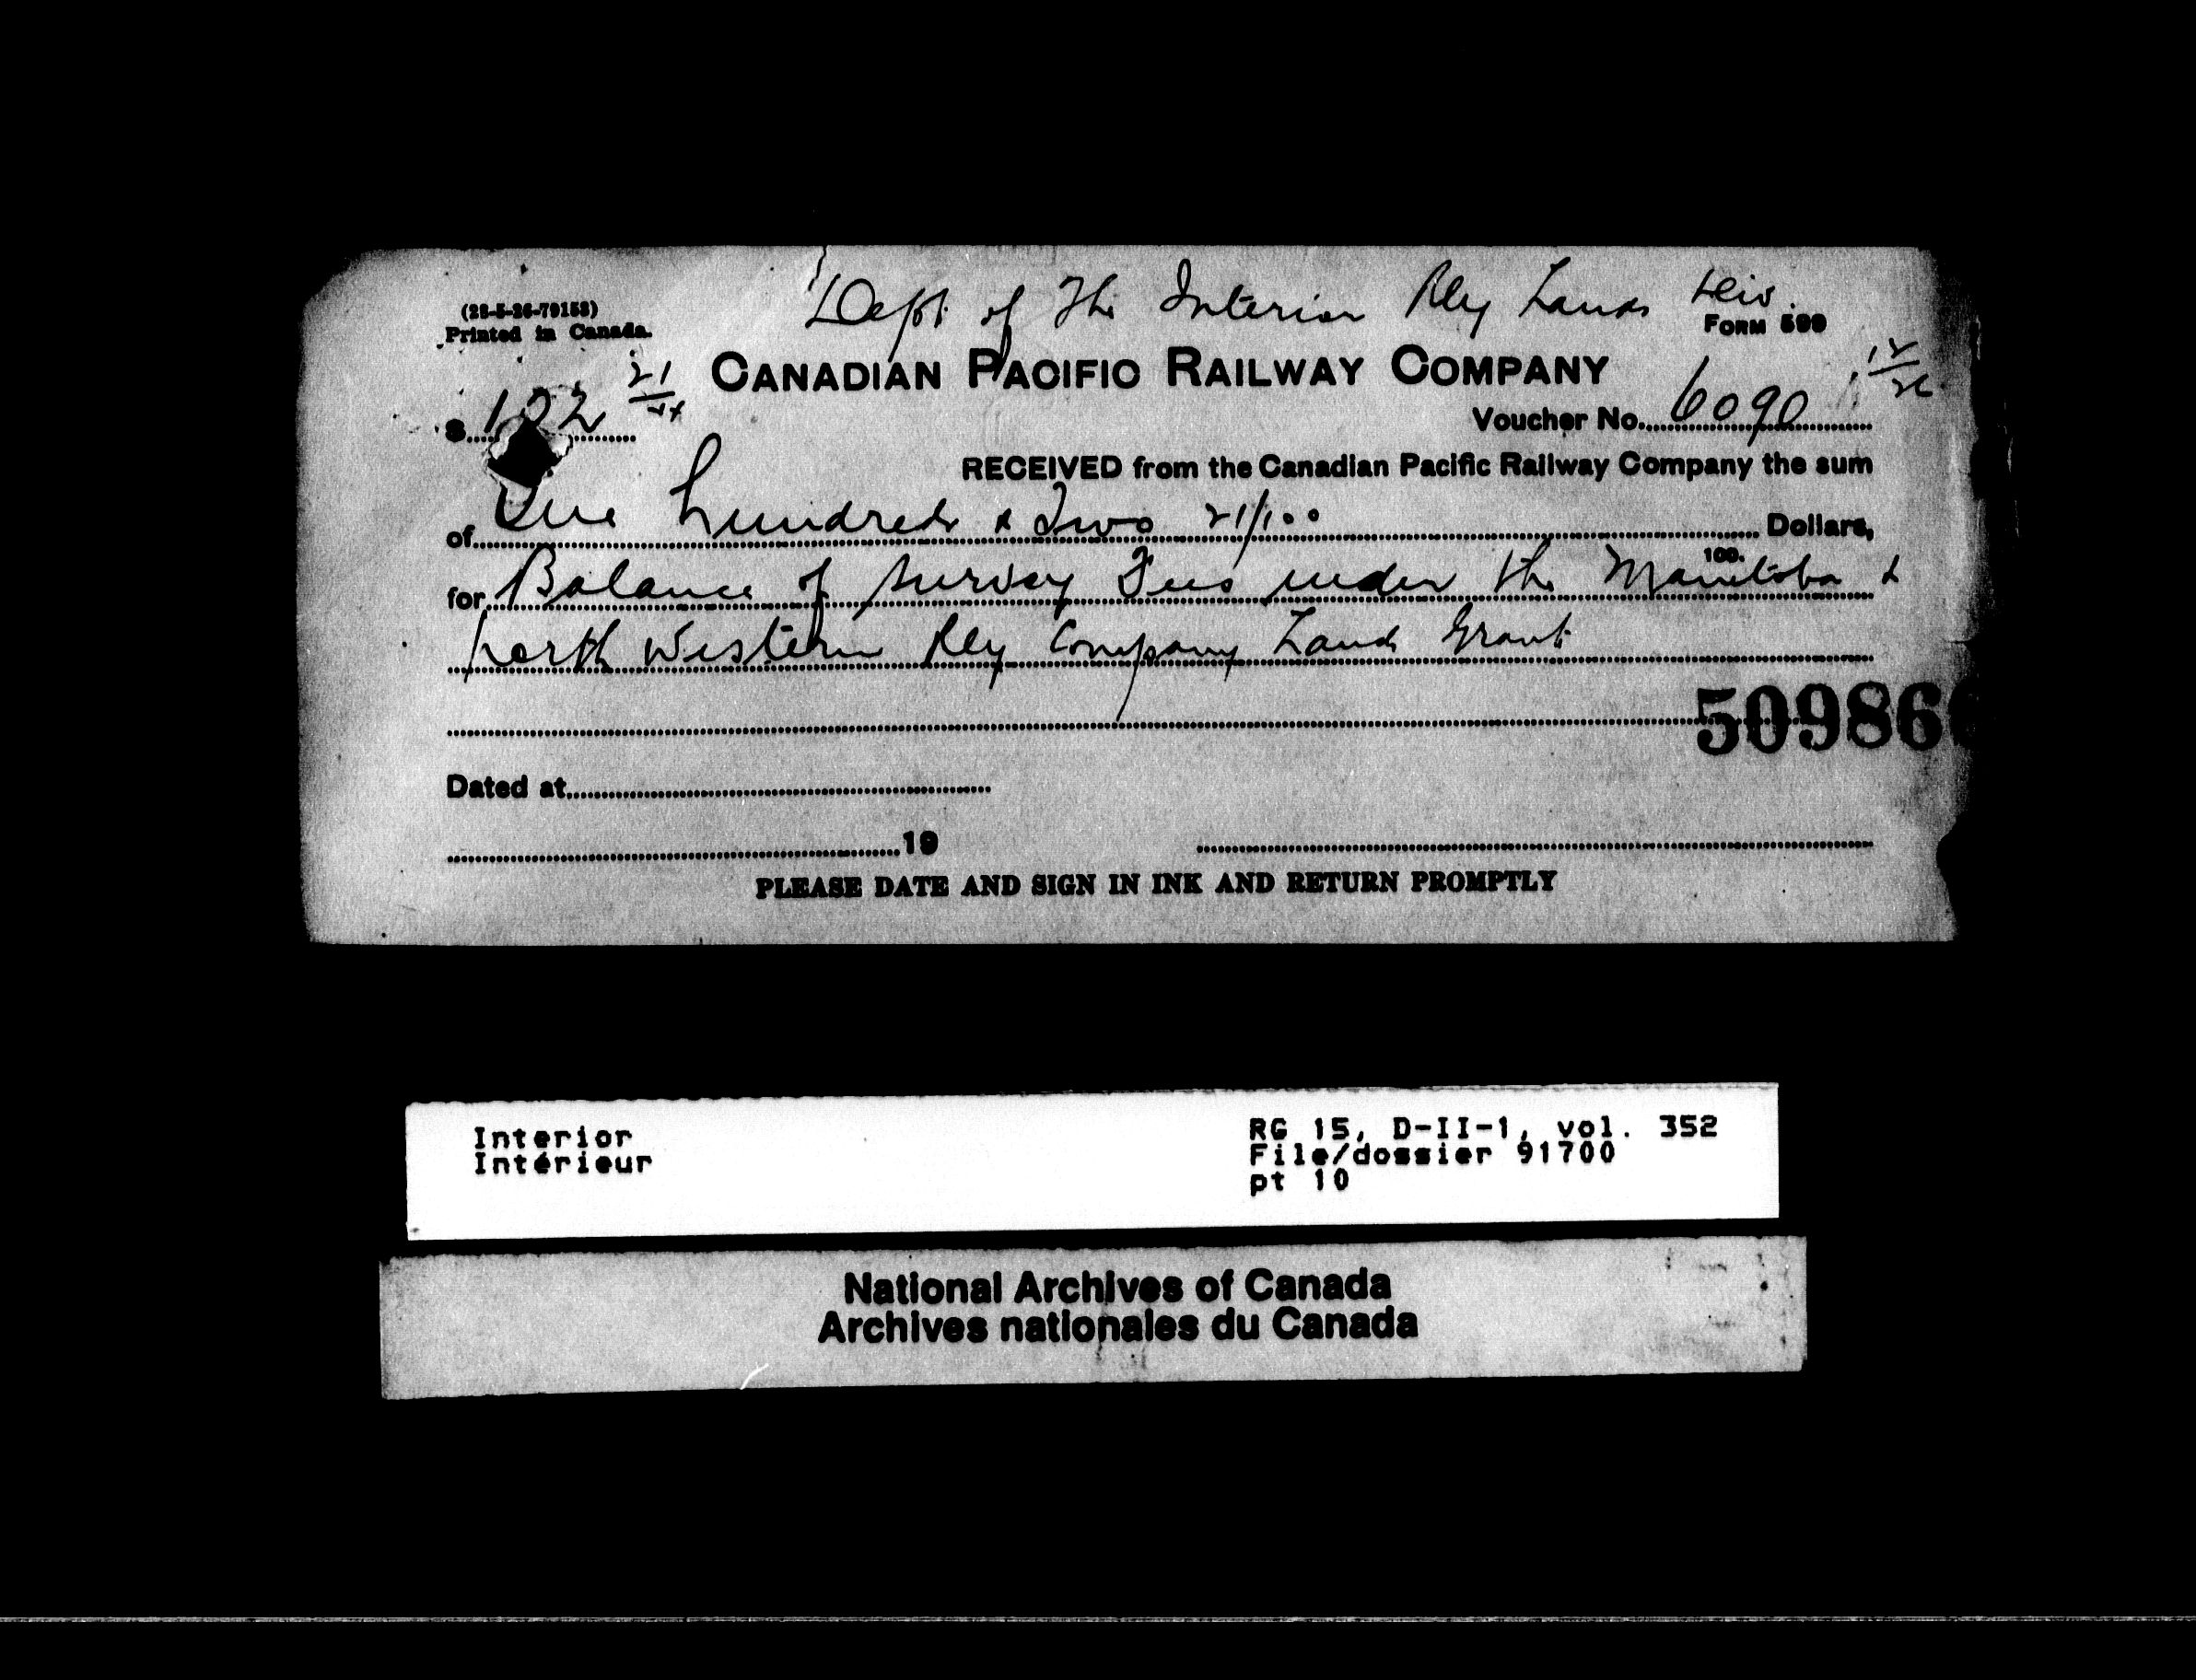 Dept of The Interior Rly Lands Div.
(28-5-26-79158)
Printed in Canada.
FORM 599
CANADIAN PACIFIC RAILWAY COMPANY
$ 102 21/xx
Voucher No. 6090 12/26
RECEIVED from the Canadian Pacific Railway Company the sum
of One hundred & Two 21/100 Dollars,
100.
for Balance of Survey Fees under the Manitoba &
North Western Rly Company Land Grant
50986
Dated at
19
PLEASE DATE AND SIGN IN INK AND RETURN PROMPTLY
Interior
Intérieur
RG 15, D-II-1, vol. 352
File/dossier 91700
pt 10
National Archives of Canada
Archives nationales du Canada